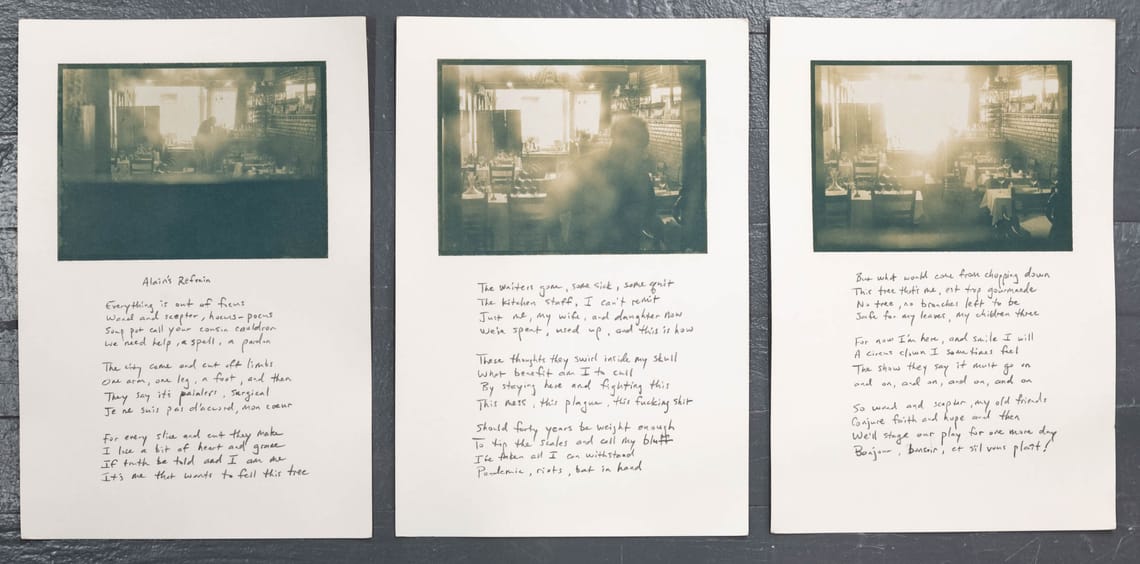 Alain's Refrain
Everything is out of focus
Wand and scepter, hocus-pocus
Soup pot call your cousin cauldron
We need help, a spell, a pardon
The city come and cut off limbs
One arm, one leg, a foot, and then
They say it's painless, surgical
Je ne suis pas d'accord, mon coeur
For every slice and cut they make
I lose a bit of heart and grace
If truth be told and I am me
It's me that wants to fell this tree
The waiters gone, some sick, some quit
The kitchen staff, I can't remit
Just me, my wife, and daughter now
We're spent, used up, and this is how
These thoughts they swirl inside my skull
What benefit am I to cull
By staying here and fighting this
This mess, this plague, this fucking shit
Should forty years be weight enough
To tip the scales and call my bluff
I've taken all I can withstand
Pandemic, riots, bat in hand
But what would come from chopping down
This tree that's me, est trop gourmande
No tree, no branches left to be
Safe for my leaves, my children three
For now I'm here, and smile I will
A circus clown I sometimes feel
The show they say it must go on
and on, and on, and on, and on
So wand and scepter, my old friends
Conjure faith and hope and then
We'll stage our play for one more day
Bonjour, bonsoir, et sil vous plait!